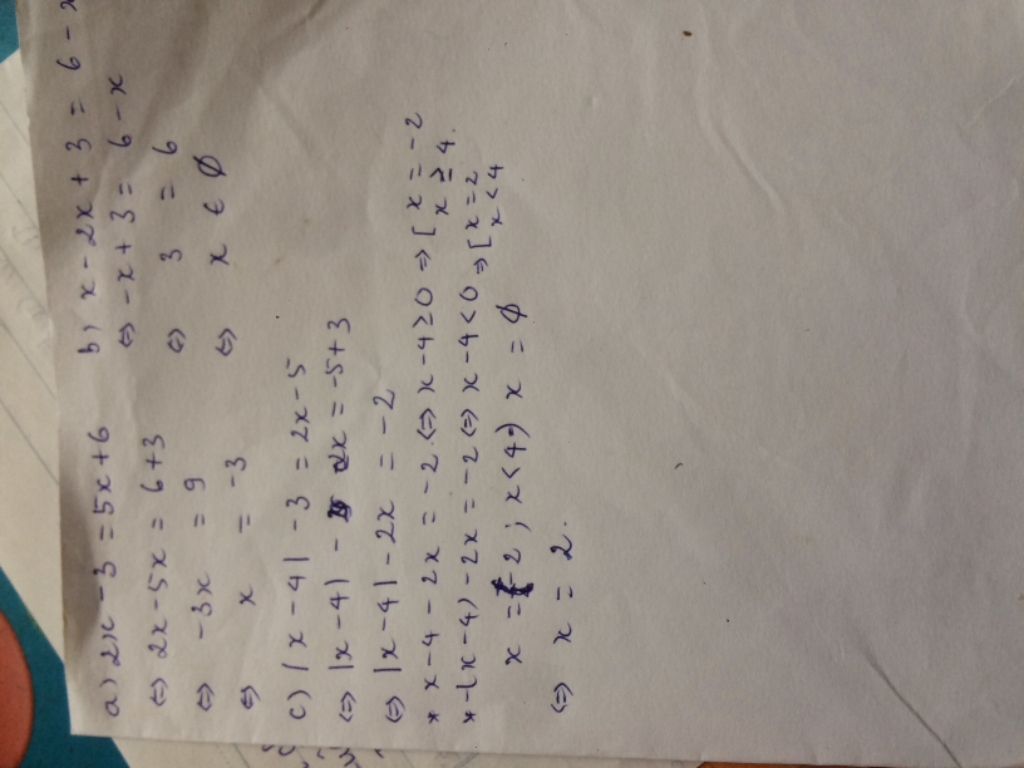 a) 2x - 3 = 5x + 6
⇔ 2x - 5x = 6 + 3
⇔ -3x = 9
⇔ x = -3
b) x - 2x + 3 = 6 - x
⇔ -x + 3 = 6 - x
⇔ 3 = 6
⇔ x ∈ ∅
c) |x - 4| - 3 = 2x - 5
⇔ |x - 4| - 2x = -5 + 3
⇔ |x - 4| - 2x = -2
* x - 4 - 2x = -2 ⇔ x - 4 ≥ 0 ⇒ [ x = -2
x ≥ 4.
* -(x - 4) - 2x = -2 ⇔ x - 4 < 0 ⇒ [ x = 2
x < 4
x = -2 ; x < 4 ) x = ∅
⇔ x = 2.